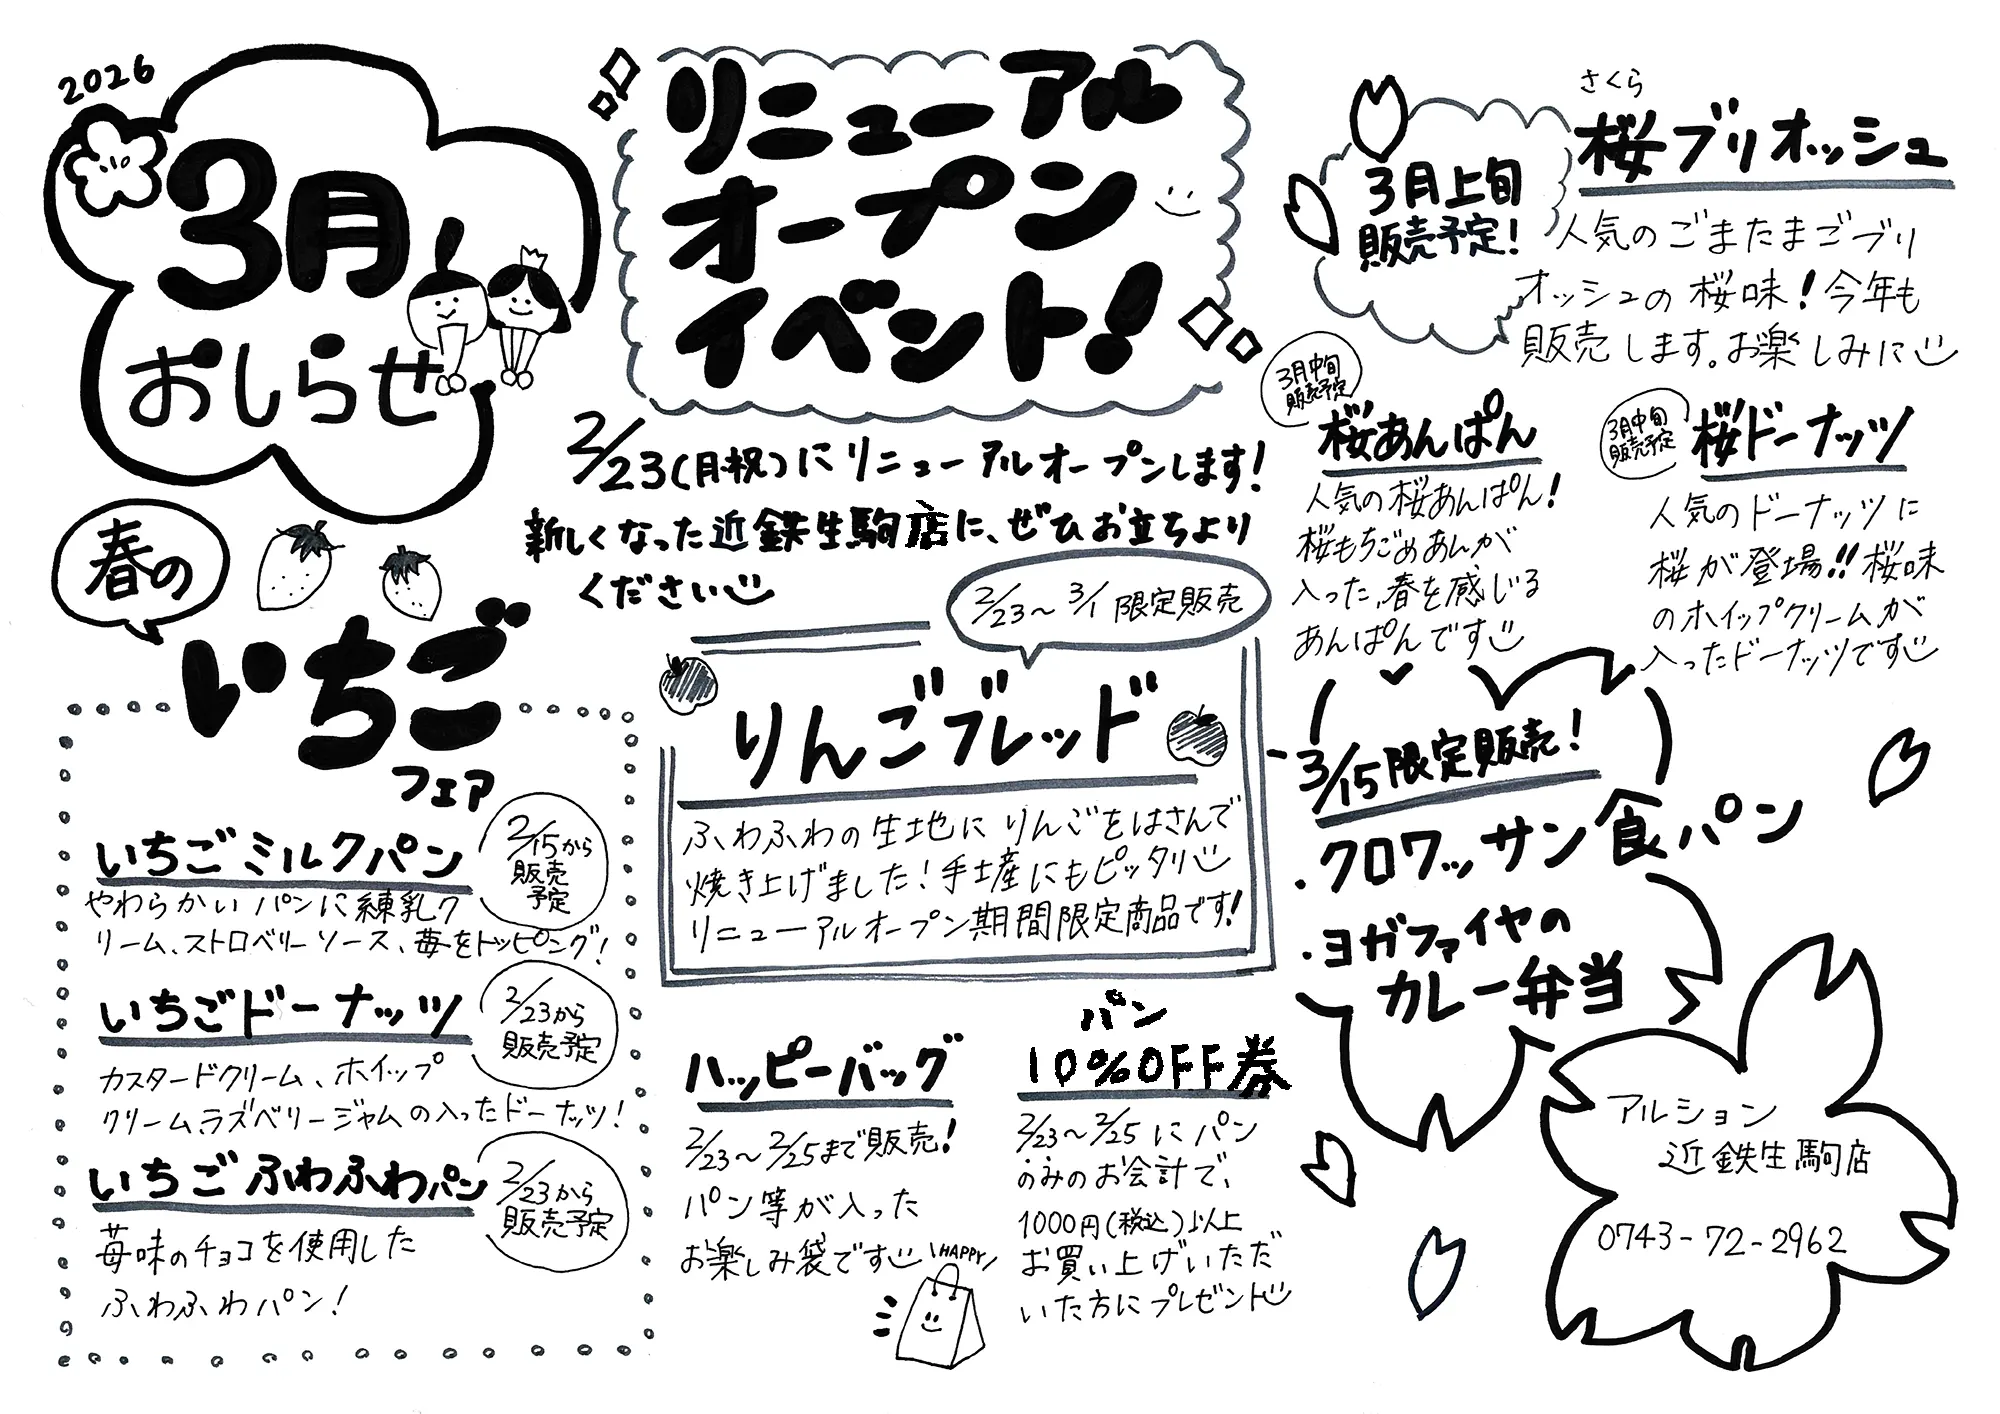 2026
3月
おしらせ
リニューアル
オープン
イベント!
2/23(月祝)にリニューアルオープンします!
新しくなった近鉄生駒店に、ぜひお立ちより
ください
春の
いちご
フェア
いちごミルクパン
2/15から
販売
予定
やわらかいパンに練乳ク
リーム、ストロベリーソース、苺をトッピング!
いちごドーナッツ
2/23から
販売予定
カスタードクリーム、ホイップ
クリーム、ラズベリージャムの入ったドーナッツ!
いちごふわふわパン
2/23から
販売予定
苺味のチョコを使用した
ふわふわパン!
2/23〜3/1限定販売
りんごブレッド
ふわふわの生地にりんごをはさんで
焼き上げました!手土産にもピッタリ
リニューアルオープン期間限定商品です!
ハッピーバッグ
2/23〜2/25まで販売!
パン等が入った
お楽しみ袋です
HAPPY
パン
10%OFF券
2/23〜2/25にパン
のみのお会計で、
1000円(税込)以上
お買い上げいただ
いた方にプレゼント
さくら
桜ブリオッシュ
3月上旬
販売予定!
人気のごまたまごブリ
オッシュの桜味!今年も
販売します。お楽しみに
3月中旬
販売予定
桜あんぱん
人気の桜あんぱん!
桜もちごめあんが
入った、春を感じる
あんぱんです
3月中旬
販売予定
桜ドーナッツ
人気のドーナッツに
桜が登場!!桜味
のホイップクリームが
入ったドーナッツです
3/15限定販売!
・クロワッサン食パン
・ヨガファイヤの
カレー弁当
アルション
近鉄生駒店
0743-72-2962